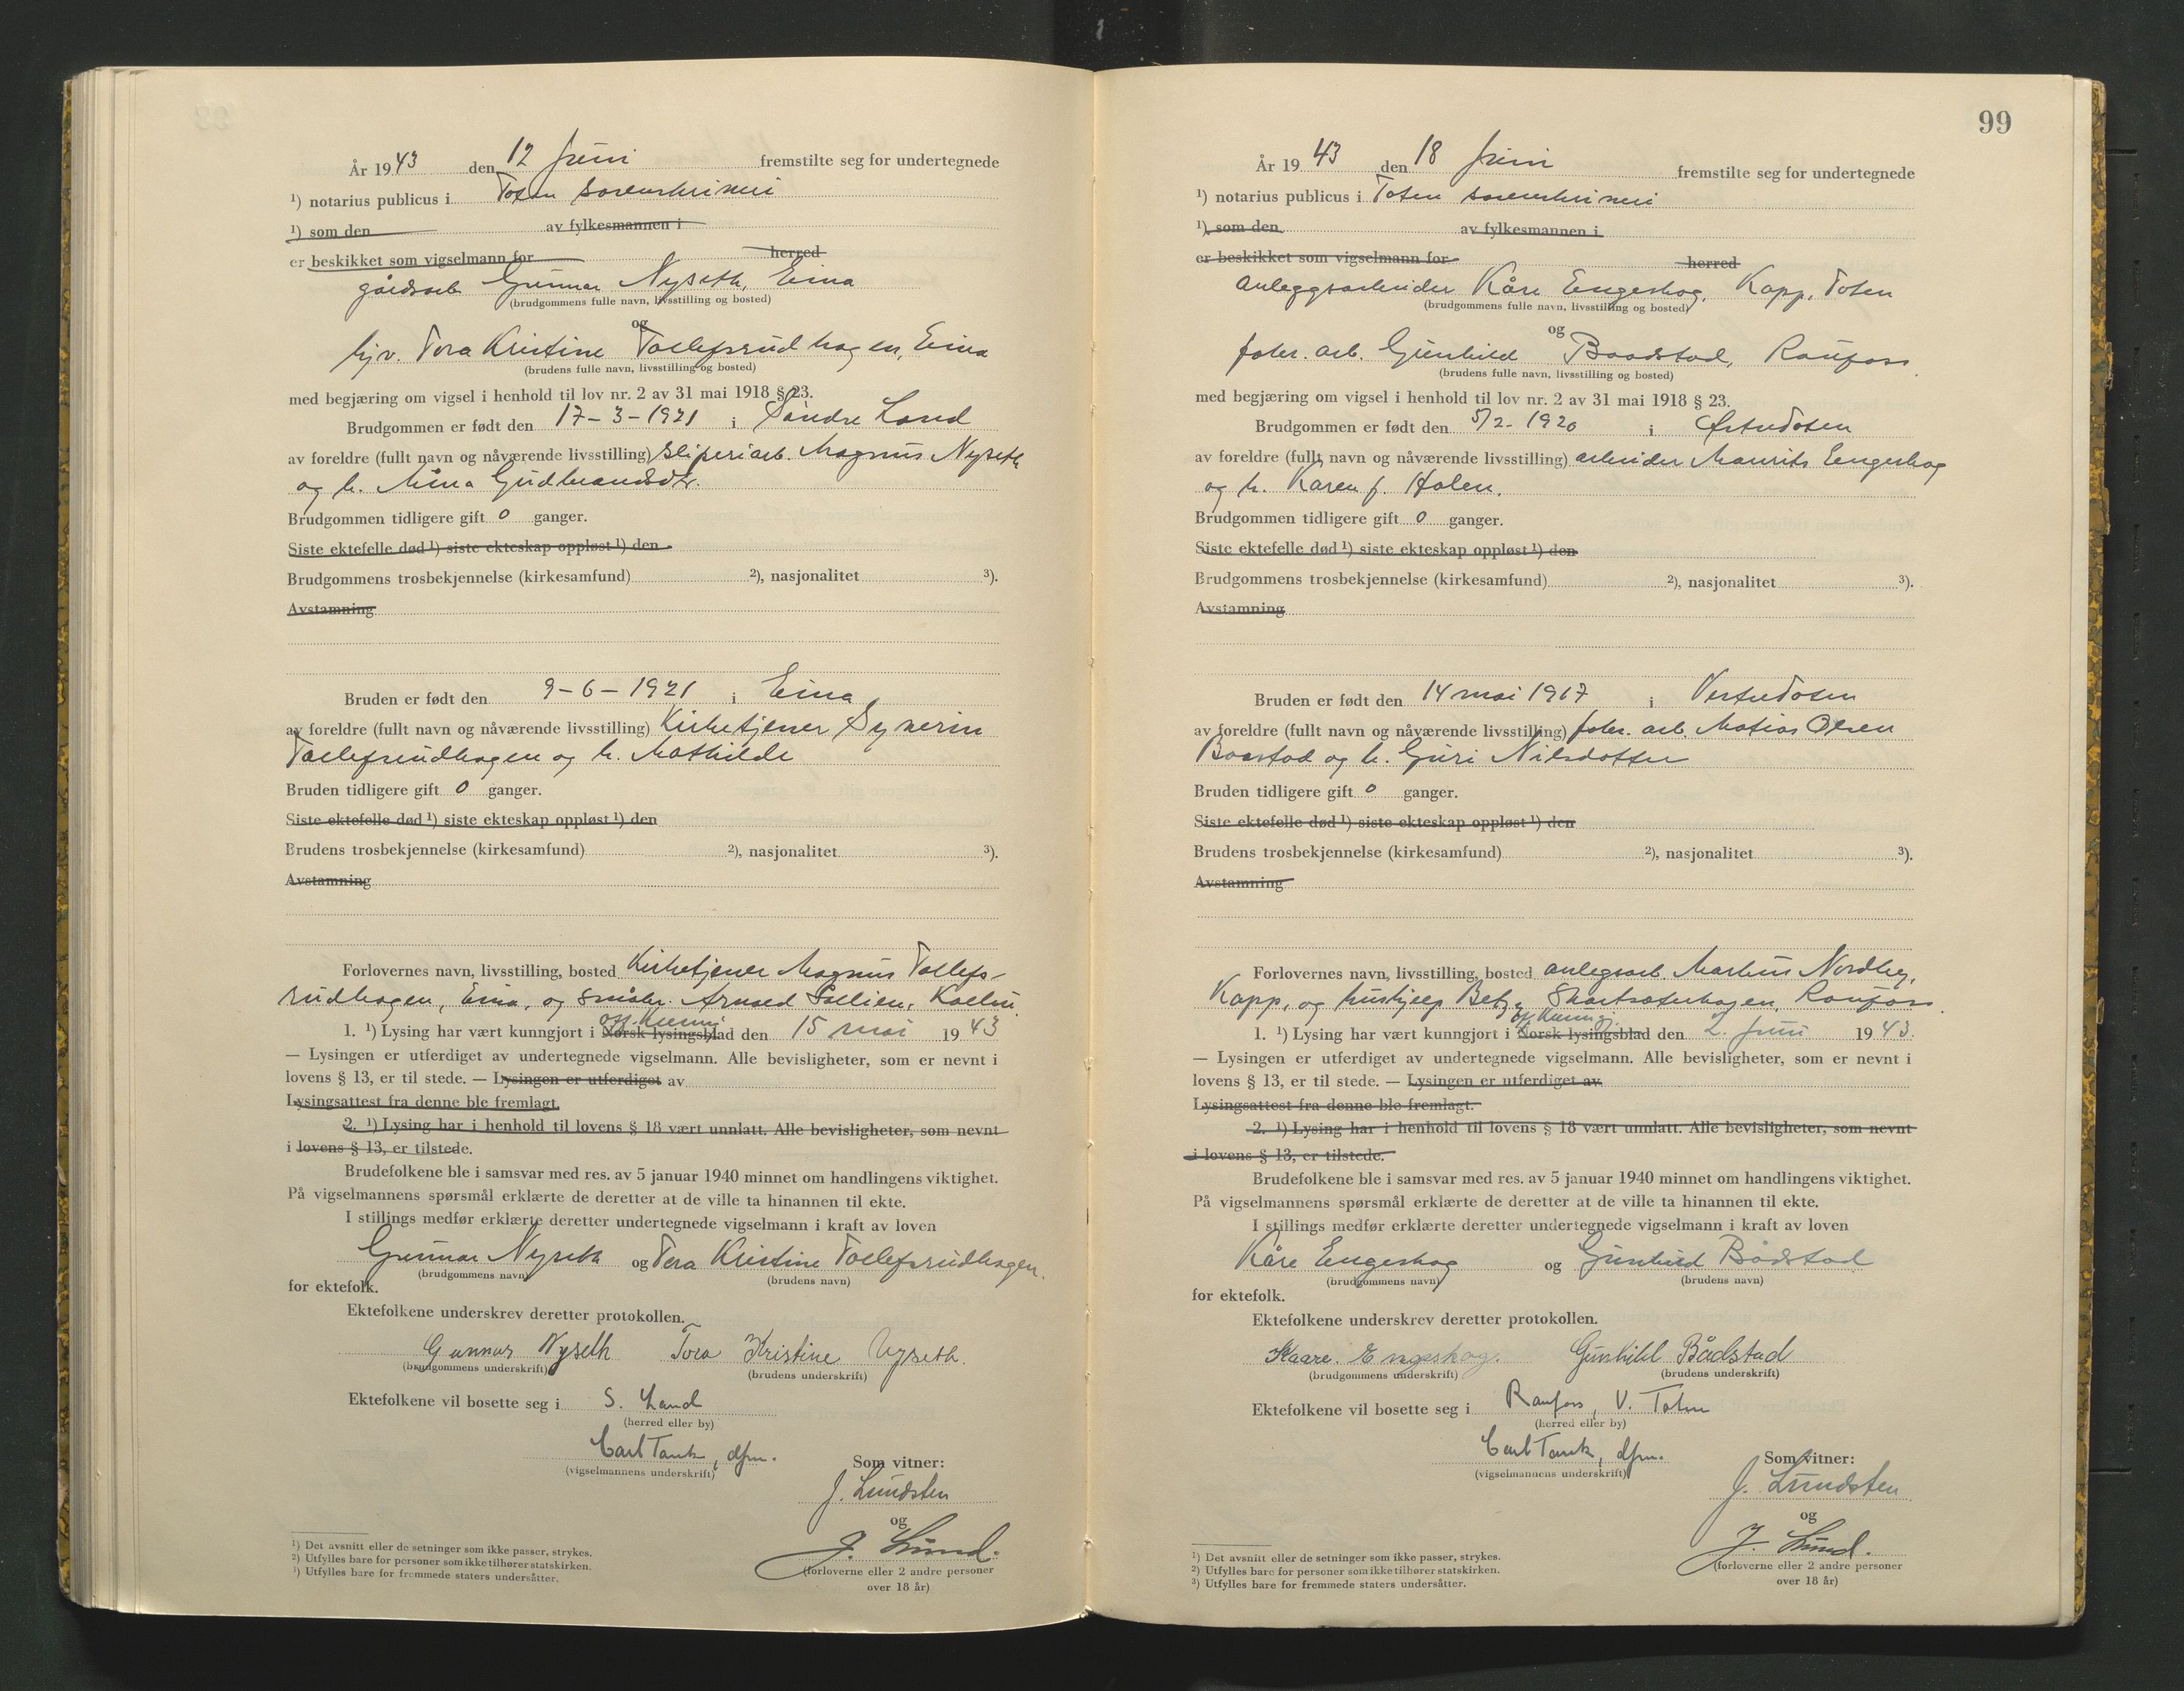 År 1943 den 12 Juni fremstilte seg for undertegnede
¹) notarius publicus i Toten sorenskriveri
¹) som den av fylkesmannen i
er beskikket som vigselmann for herred
gårdsarb Gunnar Nyseth, Eina
(brudgommens fulle navn, livsstilling og bosted)
og
hjv. Tora Kristine Tollefsrudhagen, Eina
(brudens fulle navn, livsstilling og bosted)
med begjæring om vigsel i henhold til lov nr. 2 av 31 mai 1918 § 23.
Brudgommen er født den 17-3-1921 i Søndre Land
av foreldre (fullt navn og nåværende livsstilling) sliperiarb. Magnus Nyseth
og h. Mina Gudbrandsdtr.
Brudgommen tidligere gift 0 ganger.
Siste ektefelle død ¹) siste ekteskap oppløst ¹) den
Brudgommens trosbekjennelse (kirkesamfund) ²), nasjonalitet ³).
Avstamning
Bruden er født den 9-6-1921 i Eina
av foreldre (fullt navn og nåværende livsstilling) Kirketjener Syverin
Tollefsrudhagen og h. Mathilde
Bruden tidligere gift 0 ganger.
Siste ektefelle død ¹) siste ekteskap oppløst ¹) den
Brudens trosbekjennelse (kirkesamfund) ²), nasjonalitet ³).
Avstamning
Forlovernes navn, livsstilling, bosted Kirketjener Magnus Tollefs-
rudhagen, Eina, og småbr. Arnold Sollien, Kolbu.
off. kunngj.
1. ¹) Lysing har vært kunngjort i Norsk lysingsblad den 15 mai 1943
— Lysingen er utferdiget av undertegnede vigselmann. Alle bevisligheter, som er nevnt i
lovens § 13, er til stede. — Lysingen er utferdiget av
Lysingsattest fra denne ble fremlagt.
2. ¹) Lysing har i henhold til lovens § 18 vært unnlatt. Alle bevisligheter, som nevnt
i lovens § 13, er tilstede.
Brudefolkene ble i samsvar med res. av 5 januar 1940 minnet om handlingens viktighet.
På vigselmannens spørsmål erklærte de deretter at de ville ta hinannen til ekte.
I stillings medfør erklærte deretter undertegnede vigselmann i kraft av loven
Gunnar Nyseth og Tora Kristine Tollefsrudhagen.
(brudgommens navn) (brudens navn)
for ektefolk.
Ektefolkene underskrev deretter protokollen.
Gunnar Nyseth Tora Kristine Nyseth.
(brudgommens underskrift) (brudens underskrift)
Ektefolkene vil bosette seg i S. Land
(herred eller by)
Carl Tank, dfm.
(vigselmannens underskrift)
Som vitner:
J. Lundsten
og
J. Lund.
(forloverne eller 2 andre personer
over 18 år)
¹) Det avsnitt eller de setninger som ikke passer, strykes.
²) Utfylles bare for personer som ikke tilhører statskirken.
³) Utfylles bare for fremmede staters undersåtter.
99
År 1943 den 18 Juni fremstilte seg for undertegnede
¹) notarius publicus i Toten sorenskriveri
¹) som den av fylkesmannen i
er beskikket som vigselmann for herred
anleggsarbeider Kåre Engeskog, Kapp, Toten
(brudgommens fulle navn, livsstilling og bosted)
og
fabr. arb. Gunhild Baadstad, Raufoss.
(brudens fulle navn, livsstilling og bosted)
med begjæring om vigsel i henhold til lov nr. 2 av 31 mai 1918 § 23.
Brudgommen er født den 5/2-1920 i Østre Toten
av foreldre (fullt navn og nåværende livsstilling) arbeider Maurits Engeskog
og h. Karen f. Holen.
Brudgommen tidligere gift 0 ganger.
Siste ektefelle død ¹) siste ekteskap oppløst ¹) den
Brudgommens trosbekjennelse (kirkesamfund) ²), nasjonalitet ³).
Avstamning
Bruden er født den 14 mai 1917 i Vestre Toten
av foreldre (fullt navn og nåværende livsstilling) fabr. arb. Matias Olsen
Baastad og h. Guri Nilsdotter
Bruden tidligere gift 0 ganger.
Siste ektefelle død ¹) siste ekteskap oppløst ¹) den
Brudens trosbekjennelse (kirkesamfund) ²), nasjonalitet ³).
Avstamning
Forlovernes navn, livsstilling, bosted anlegsarb. Markus Nordby,
Kapp, og hushjelp Betzy Skartseterhagen, Raufoss.
off. kunngj.
1. ¹) Lysing har vært kunngjort i Norsk lysingsblad den 2. juni 1943.
— Lysingen er utferdiget av undertegnede vigselmann. Alle bevisligheter, som er nevnt i
lovens § 13, er til stede. — Lysingen er utferdiget av
Lysingsattest fra denne ble fremlagt.
2. ¹) Lysing har i henhold til lovens § 18 vært unnlatt. Alle bevisligheter, som nevnt
i lovens § 13, er tilstede.
Brudefolkene ble i samsvar med res. av 5 januar 1940 minnet om handlingens viktighet.
På vigselmannens spørsmål erklærte de deretter at de ville ta hinannen til ekte.
I stillings medfør erklærte deretter undertegnede vigselmann i kraft av loven
Kåre Engeskog og Gunhild Bådstad
(brudgommens navn) (brudens navn)
for ektefolk.
Ektefolkene underskrev deretter protokollen.
Kaare. Engeskog. Gunhild Bådstad
(brudgommens underskrift) (brudens underskrift)
Ektefolkene vil bosette seg i Raufoss, V. Toten
(herred eller by)
Carl Tank, dfm.
(vigselmannens underskrift)
Som vitner:
J. Lundsten
og
J. Lund.
(forloverne eller 2 andre personer
over 18 år)
¹) Det avsnitt eller de setninger som ikke passer, strykes.
²) Utfylles bare for personer som ikke tilhører statskirken.
³) Utfylles bare for fremmede staters undersåtter.